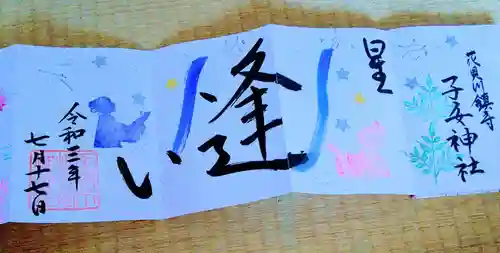 花見川鎮守
子安神社
星
逢
い
令和三年
七月十七日